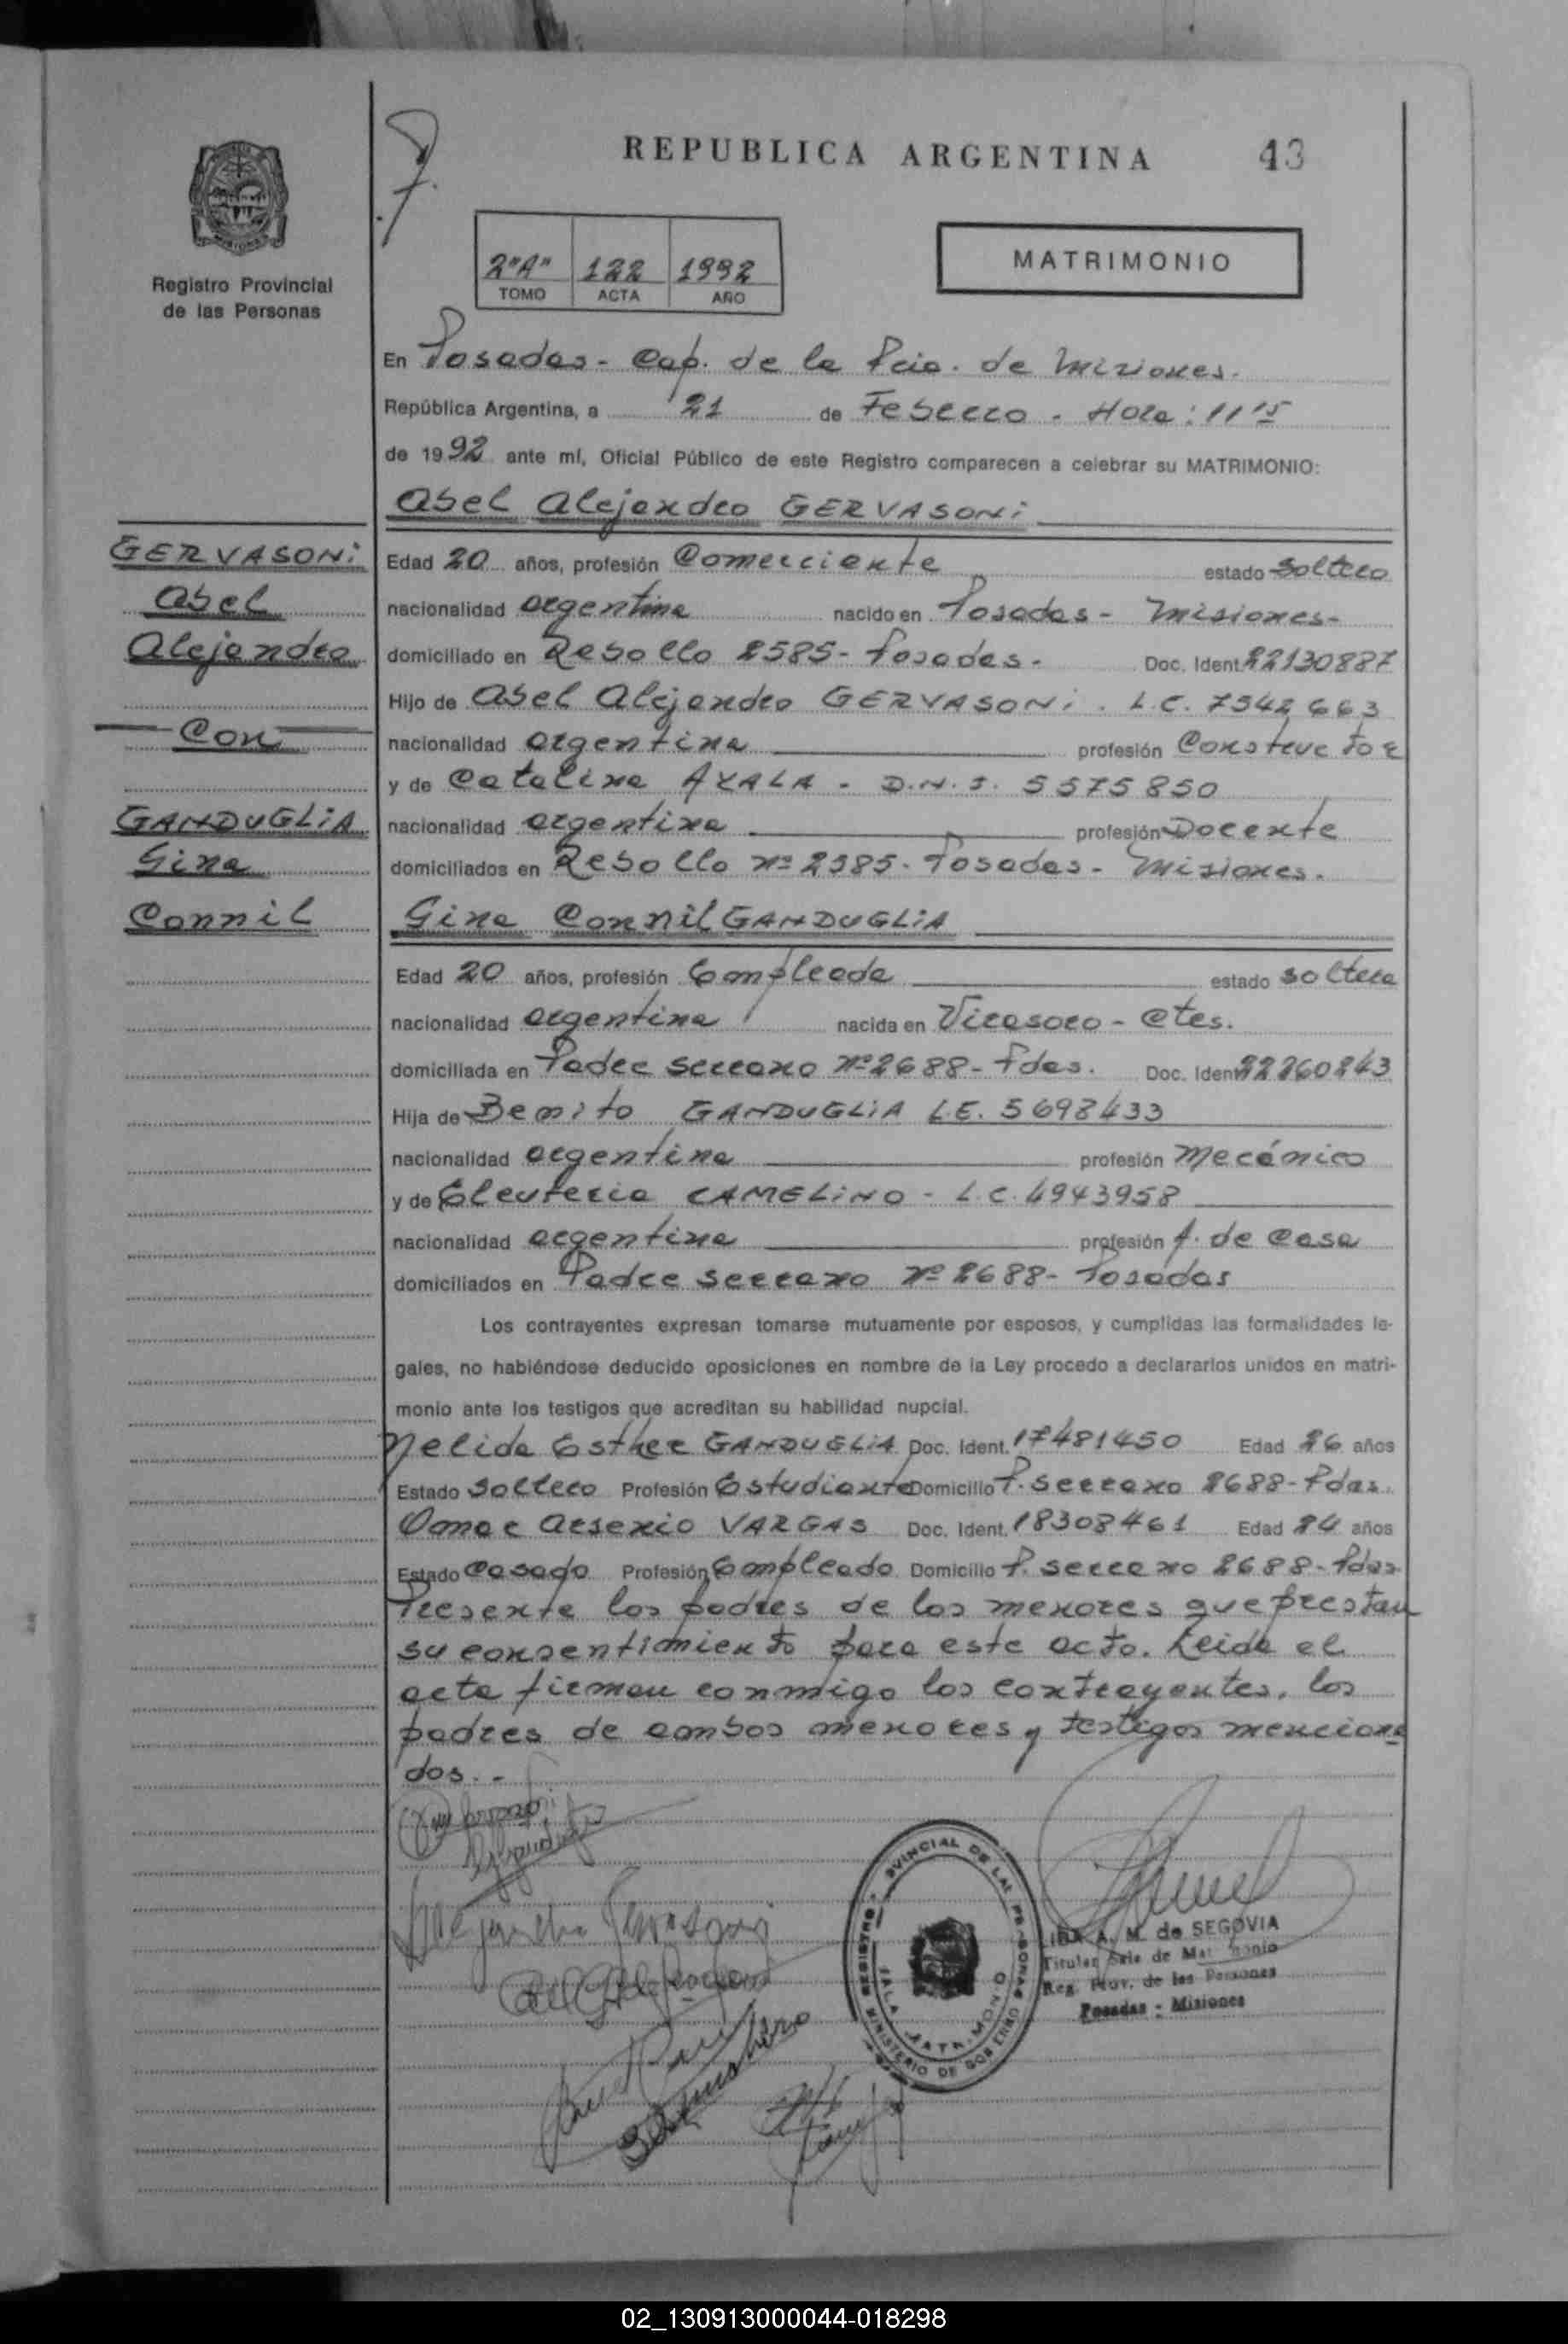 REPUBLICA ARGENTINA 43
Registro Provincial
de las Personas
2"A" 122 1992
TOMO ACTA AÑO
MATRIMONIO
En Posadas - Cap. de la Pcia. de Misiones.
República Argentina, a 21 de Febrero - Hora: 11'15
de 1992 ante mí, Oficial Público de este Registro comparecen a celebrar su MATRIMONIO:
Abel Alejandro GERVASONI
GERVASONI
Abel
Alejandro
Con
GANDUGLIA
Gina
Connil
Edad 20 años, profesión Comerciante estado Soltero
nacionalidad argentina nacido en Posadas - Misiones-
domiciliado en Rebollo 2585- Posadas- Doc. Ident. 22130887
Hijo de Abel Alejandro GERVASONI. L.E. 7542663
nacionalidad argentina profesión Constructor
y de Catalina AYALA - D.N.I. 5575850
nacionalidad argentina profesión Docente
domiciliados en Rebollo Nº 2585- Posadas- Misiones.
Gina Connil GANDUGLIA
Edad 20 años, profesión Empleada estado soltera
nacionalidad argentina nacida en Virasoro - Ctes.
domiciliada en Padre Serrano Nº 2688- Pdas. Doc. Ident. 22260243
Hija de Benito GANDUGLIA L.E. 5698433
nacionalidad argentina profesión Mecánico
y de Eleuteria CAMELINO - L.C. 4943958
nacionalidad argentina profesión A. de Casa
domiciliados en Padre Serrano Nº 2688- Posadas
Los contrayentes expresan tomarse mutuamente por esposos, y cumplidas las formalidades le-
gales, no habiéndose deducido oposiciones en nombre de la Ley procedo a declararlos unidos en matri-
monio ante los testigos que acreditan su habilidad nupcial.
Nelida Esther GANDUGLIA Doc. Ident. 17481450 Edad 26 años
Estado Soltero Profesión Estudiante Domicilio P. Serrano 2688- Pdas.
Omar Arsenio VARGAS Doc. Ident. 18308461 Edad 24 años
Estado Casado Profesión Empleado Domicilio P. Serrano 2688- Pdas
Presente los padres de los menores que prestan
su consentimiento para este acto. Leida el
acta firman conmigo los contrayentes, los
padres de ambos menores y testigos menciona
dos.-
REGISTRO PROVINCIAL DE LAS PERSONAS
MINISTERIO DE GOBIERNO
SALA MATRIMONIO
A. M. de SEGOVIA
Titular Sala de Matrimonio
Reg. Prov. de las Personas
Posadas - Misiones
02_130913000044-018298